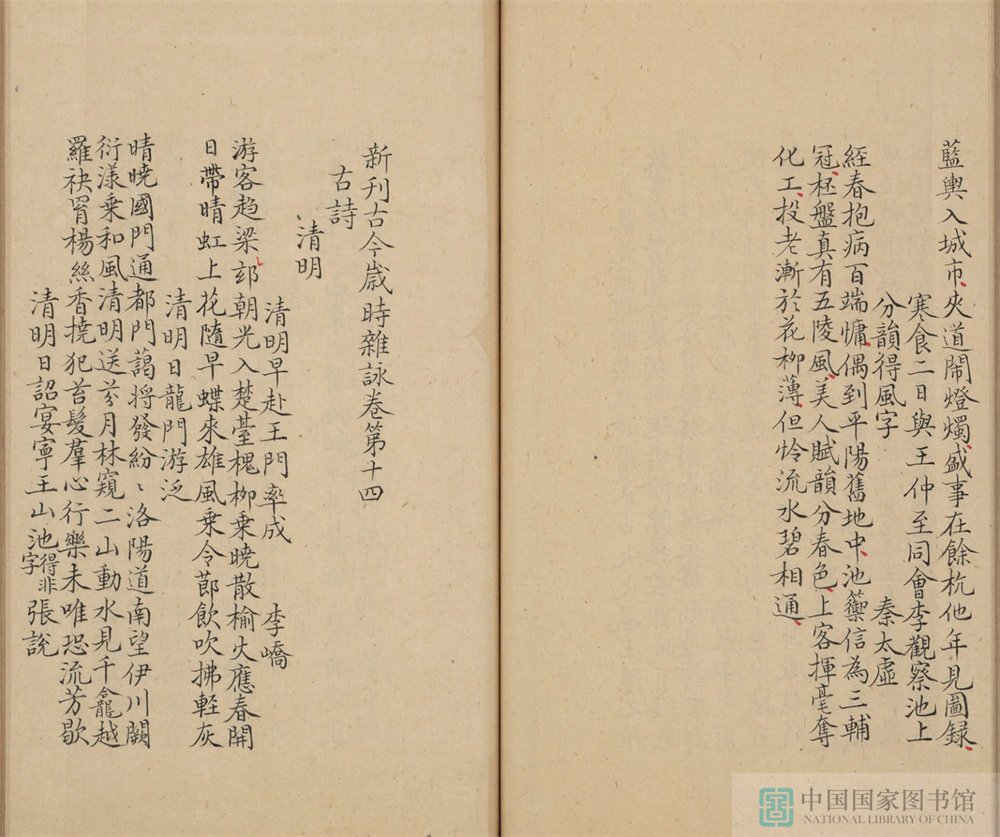 藍輿入城市夾道鬧燈燭盛事在餘杭他年見圖録
寒食二日與王仲至同會李觀察池上
分韻得風字 秦太虛
經春抱病百端慵偶到平陽舊地中池籞信為三輔
冠柸盤真有五陵風美人賦韻分春色上客揮毫奪
化工投老漸於花柳薄但怜流水碧相通
新刊古今歲時雜詠卷第十四
古詩
清明
清明早赴王門率成 李嶠
游客趋梁邸朝光入楚臺槐柳乗曉散榆火應春開
日帶晴虹上花隨早蝶來雄風乗令莭飲吹拂軽灰
清明日龍門游泛
晴曉國門通都門藹将發紛〻洛陽道南望伊川闕
衍漾乗和風清明送芬月林窺二山動水見千龕越
羅袂罥楊絲香撓犯苔髮羣心行樂未唯恐流芳歇
清明日詔宴寕王山池得非字 張說
中国国家图书馆
NATIONAL LIBRARY OF CHINA